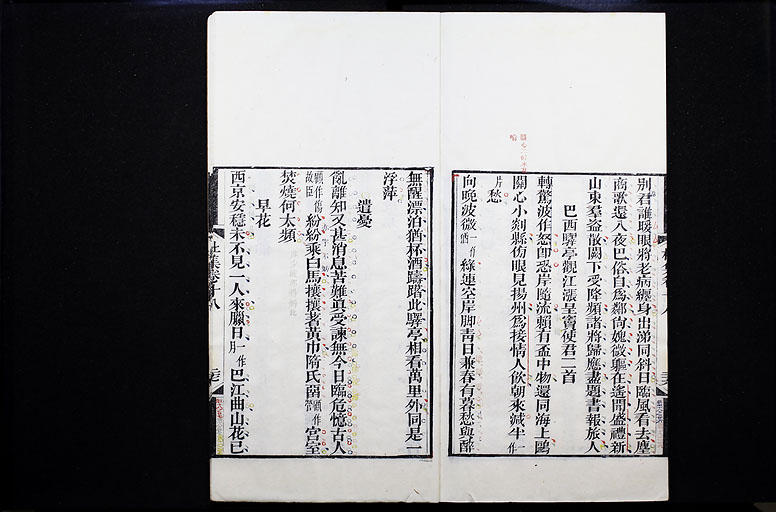 別君誰暖眼將老病纏身出涕同斜日臨風看去塵
商歌還入夜巴俗自為鄰尚媿微軀在遙聞盛禮新
山東羣盜散闕下受降頻諸將歸應盡題書報旅人
巴西驛亭觀江漲呈竇使君二首
轉驚波作怒即恐岸隨流賴有盃中物還同海上鷗
關心小剡縣傍眼見揚州為接情人飲朝來減半一作
片愁
向晚波微一作綠連空岸脚青日兼春有暮愁與醉
無醒漂泊猶杯酒躊躇此驛亭相看萬里外同是一
浮萍
遣憂
亂離知又甚消息苦難真受諫無今日臨危憶古人
紛紛乘白馬攘攘著黃巾隋氏留宮室
焚燒何太頻
早花
西京安穩未不見一人來臘日一作月巴江曲山花已